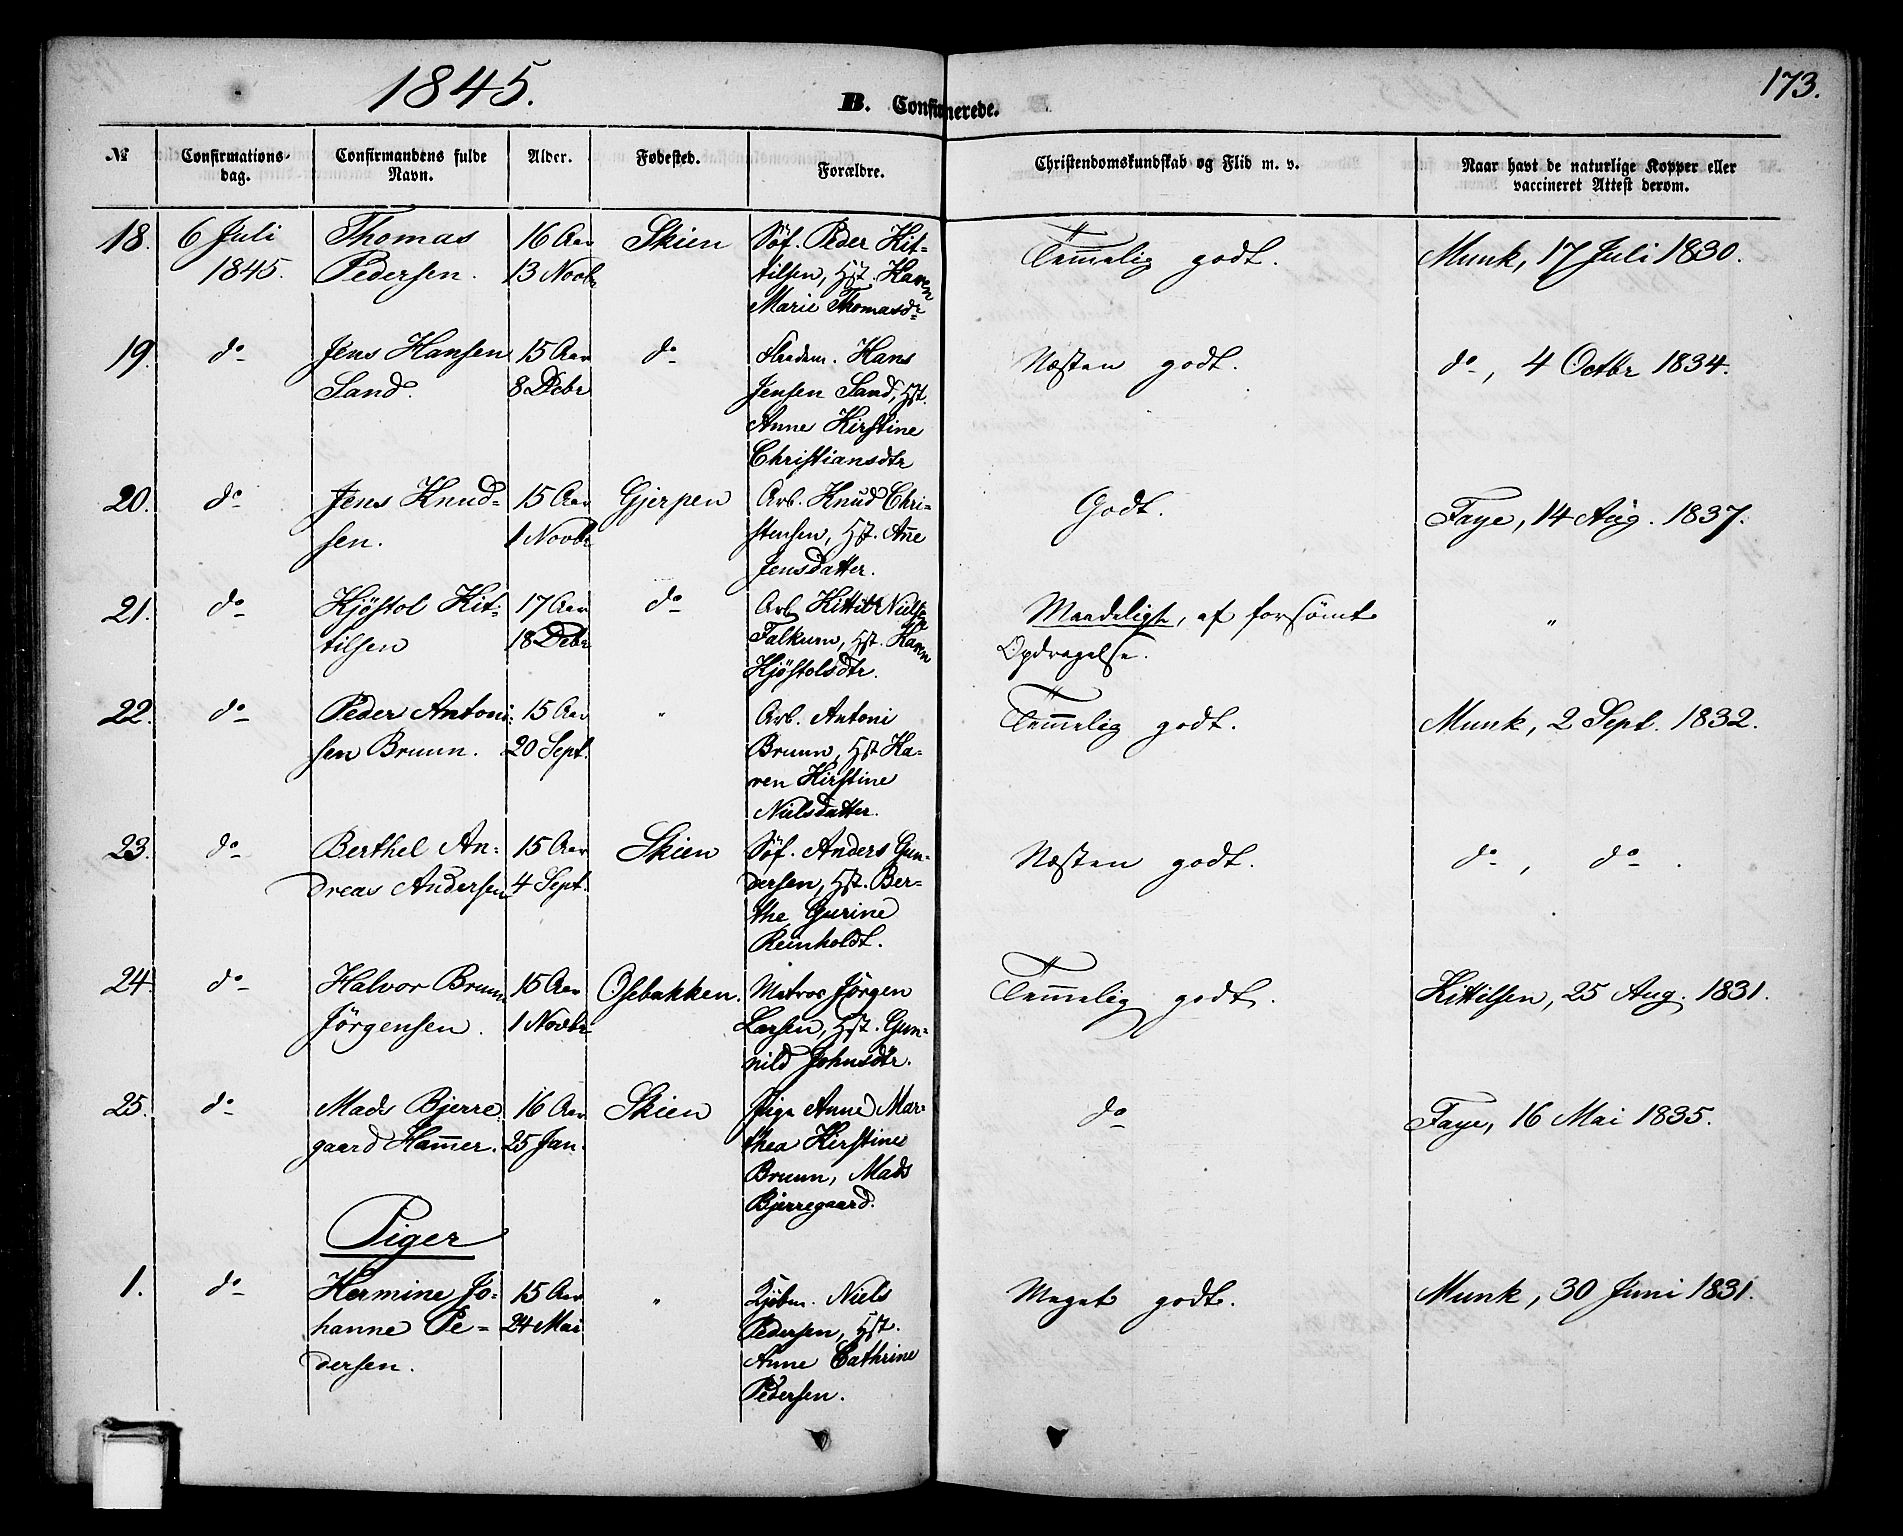 1845.
B. Confirmerede.
173.
№
Confirmations-
dag.
Confirmandens fulde
Navn.
Alder.
Fødested.
Forældre.
Christendomskundskab og Flid m. v.
Naar havt de naturlige Kopper eller
vaccineret Attest derom.
18.
6 Juli
1845.
Thomas
Pedersen.
16 Aar
13 Novbr
Skien
Söf. Peder Kit-
tilsen, Hst. Karen
Marie Thomasdr
Temmelig godt.
Munk, 17 Juli 1830.
19.
do
Jens Hansen
Sand.
15 Aar
8 Debr
do
Hans
Jensen Sand, Hst.
Anne Kirstine
Christiansdtr
Næsten godt.
do, 4 Octbr 1834.
20.
do
Jens Knud-
sen.
15 Aar
1 Novbr
Gjerpen
Arb. Knud Chri-
stensen, Hst. Ane
Jensdatter.
Godt.
Faye, 14 Aug. 1837.
21.
do
Kjöstol Kit-
tilsen
17 Aar
18 Debr
do
Arb Kittil Nielsen
Falkum, Hst. Karen
Kjöstolsdtr.
Maadeligt, af forsömt
Opdragelse.
"
22.
do
Peder Antoni-
sen Bruun.
15 Aar
20 Sept.
"
Arb. Antoni
Bruun, Hst Ka-
ren Kirstine
Nielsdatter.
Temmelig godt.
Munk, 2 Sept. 1832.
23.
do
Berthel An-
dreas Andersen
15 Aar
4 Sept.
Skien
Söf. Anders Gun-
dersen, Hst. Ber-
the Gurine
Reinholdt.
Næsten godt.
do, do.
24.
do
Halvor Bruun
Jörgensen.
15 Aar
1 Novbr
Osebakken.
Matros Jörgen
Larsen, Hst. Gun-
nild Johnsdtr.
Temmelig godt.
Kittilsen, 25 Aug. 1831.
25.
do
Mads Bjerre
gaard Hamer.
16 Aar
25 Jan.
Skien
Pige Anne Mar-
thea Kirstine
Bruun, Mads
Bjerregaard.
do
Faye, 16 Mai 1835.
Piger
1.
do
Hermine Jo-
hanne Pe-
dersen.
15 Aar
24 Mai
"
Kjöbm. Niels
Pedersen, Hst.
Anne Cathrine
Pedersen.
Meget godt.
Munk, 30 Juni 1831.